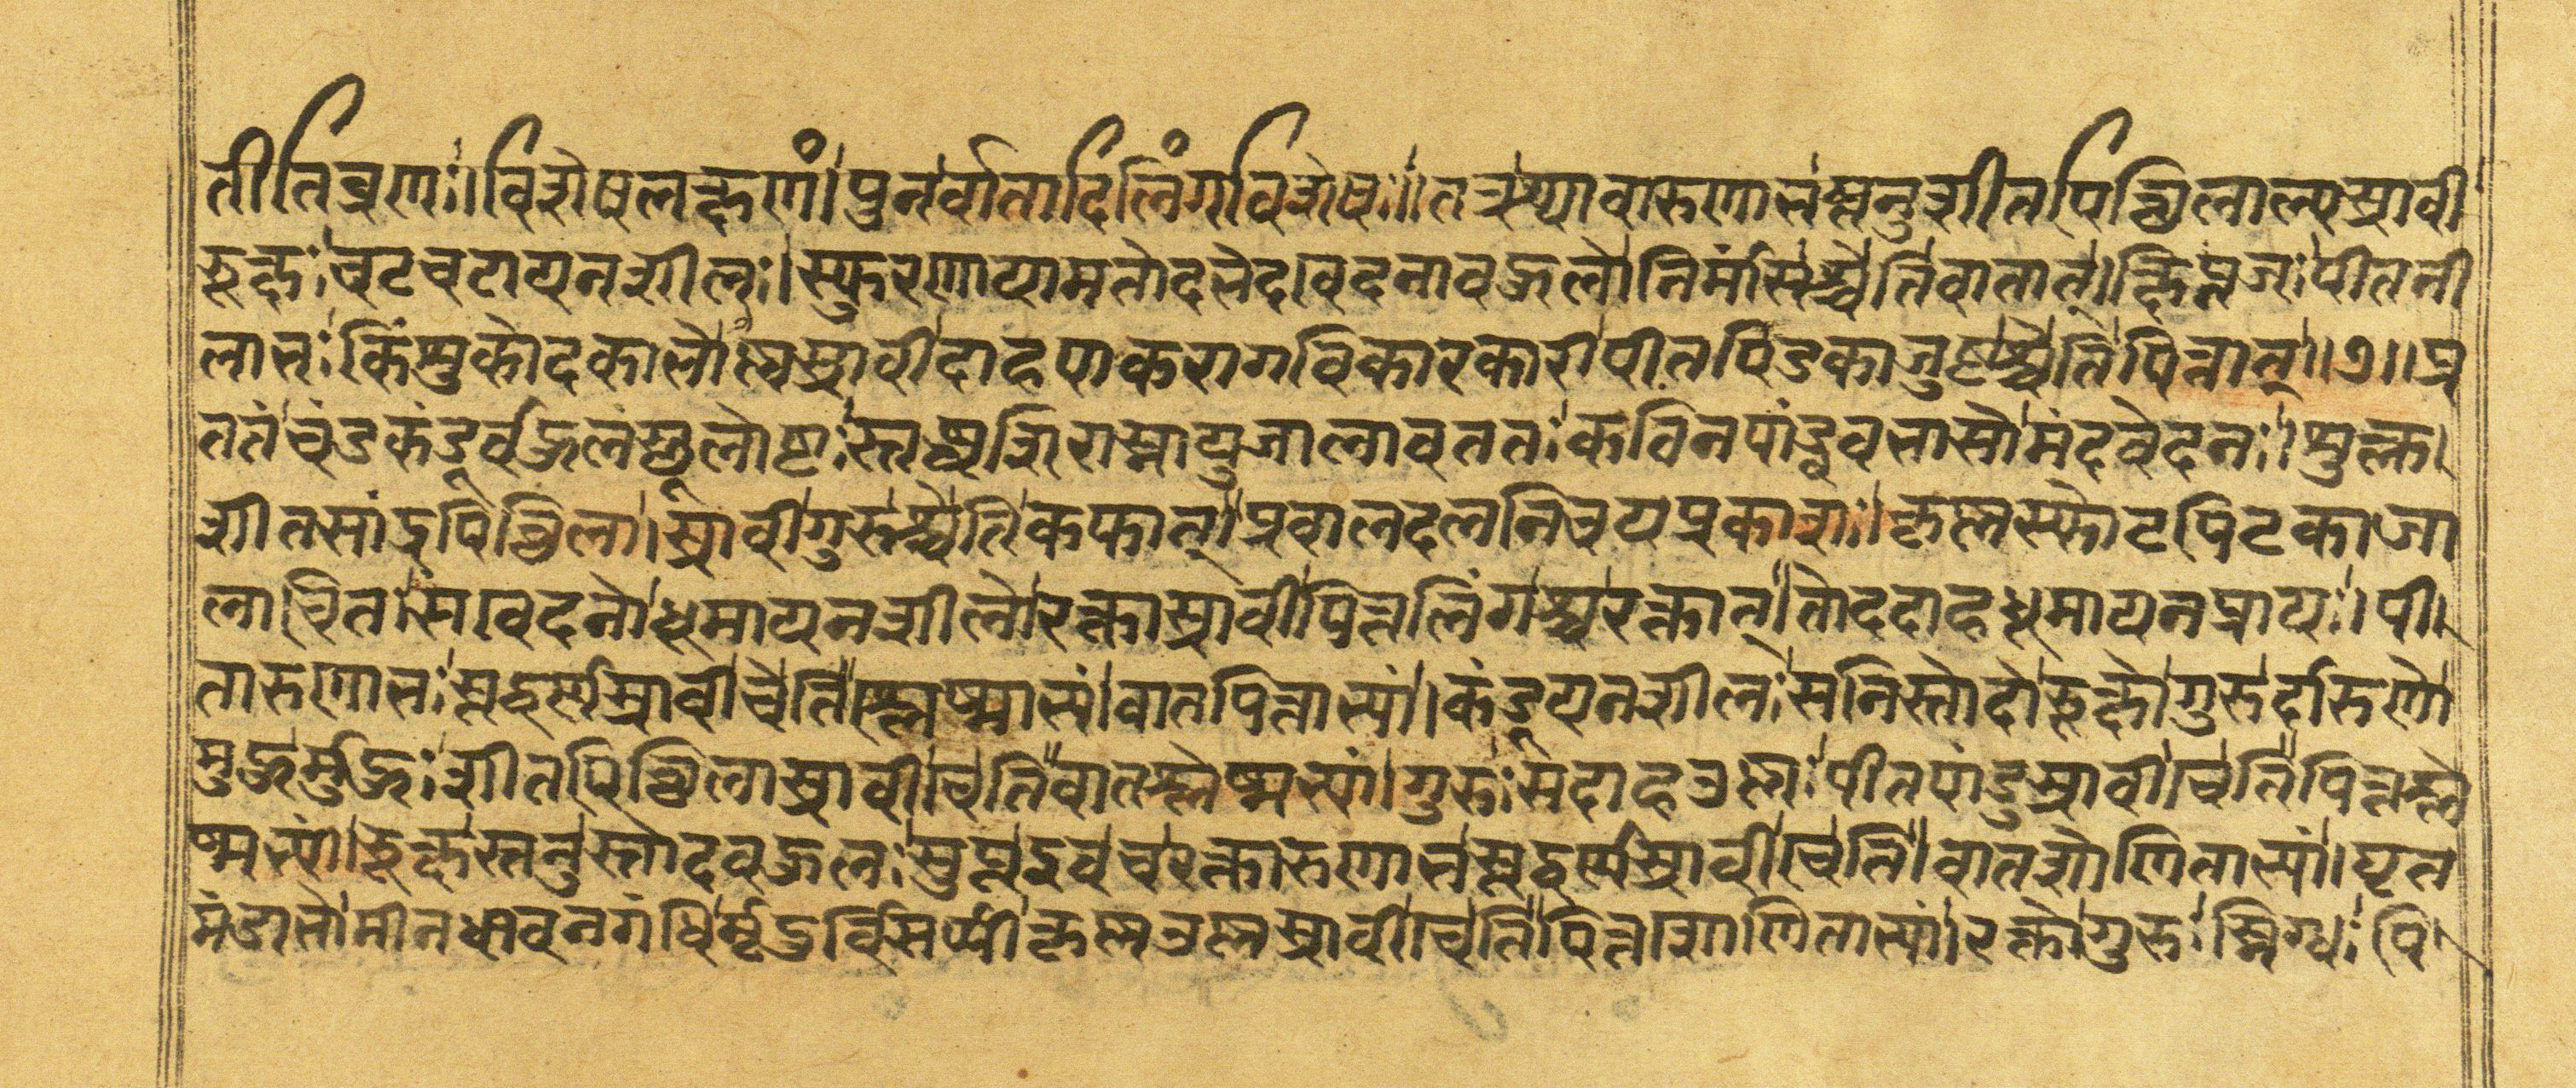 तीति व्रणः। विशेषलक्षणं। पुनर्वातादिलिंगविशेषः॥ तत्र श्यावारुणाभस्तनुशीतपिछिलाल्पस्रावी
रूक्षः चटचटायनशीलः। स्फुरणायामतोदभेदवेदनावहुलो निर्मांसश्चेति वातात्। क्षिप्रजः पीतनी
लाभः किंशुकोदकाभोष्णस्रावी दाहपाकरागविकारकारी पीतपिडकाजुष्टश्चेति पित्तात्॥१॥ प्र
ततचंडकंडूवहुलस्थूलोष्टः स्तब्धशिरास्नायुजालावततः कठिनपांड्ववभासो मंदवेदनः। शुक्ल
शीतसांद्रपिछिलास्रावी गुरुश्चेति कफात्। प्रवालदलनिचयप्रकाशः। कृष्णस्फोटपिटकाजा
लाचितः सवेदनो धूमायनशीलो रक्तास्रावी पित्तलिंगश्च रक्तात्। तोददाहधूमायनप्रायः। पी
तारुणाभः स्तद्वर्णस्रावी चेति वातपित्ताभ्यां। कंडूयनशीलः सनिस्तोदो रूक्षो गुरुर्दारुणो
मुहुर्मुहुः शीतपिछिलास्रावी चेति वातश्लेष्मभ्यां। गुरुः सदाह उष्णः पीतपांडुस्रावी चेति पित्तश्ले
ष्मभ्यां। रूक्षस्तनुस्तोदवहुलः सुप्त इव च रक्तारुणाभस्तद्वर्णस्रावी चेति वातशोणिताभ्यां। घृत
मंडाभो मीनधावनगंधिर्मृदुर्विसर्पी कृष्ण उष्णस्रावी चेति पित्तशोणिताभ्यां। रक्तो गुरुः स्निग्धः पि